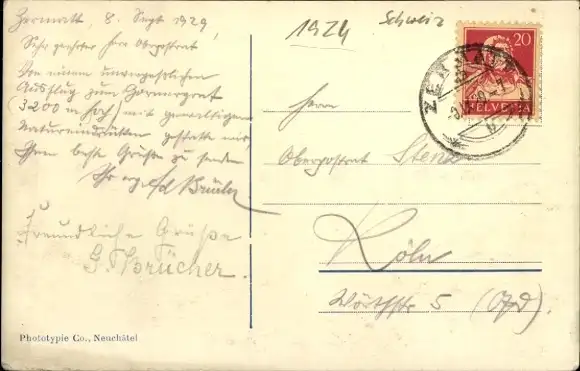 Zermatt, 8. Sept 1929
Sehr geehrter Herr Oberpostrat
Von einem unvergeßlichen
Ausflug zum Gornergrat
(3200 m hoch) mit gewaltigen
Natureindrücken gestatte mir,
Ihnen beste Grüße zu senden
Ihr ergeb.
Freundliche Grüße
G. Brücher.
Phototypie Co., Neuchâtel
1924
Schweiz
20
HELVETIA
ZERMATT
Herrn
Oberpostrat Stenz
Köln
Wörthstr 5